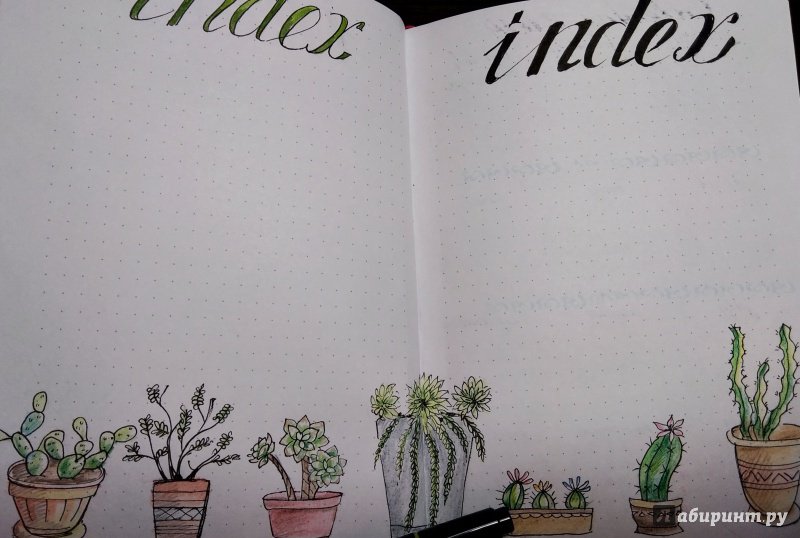 index
index
Лабиринт.ру